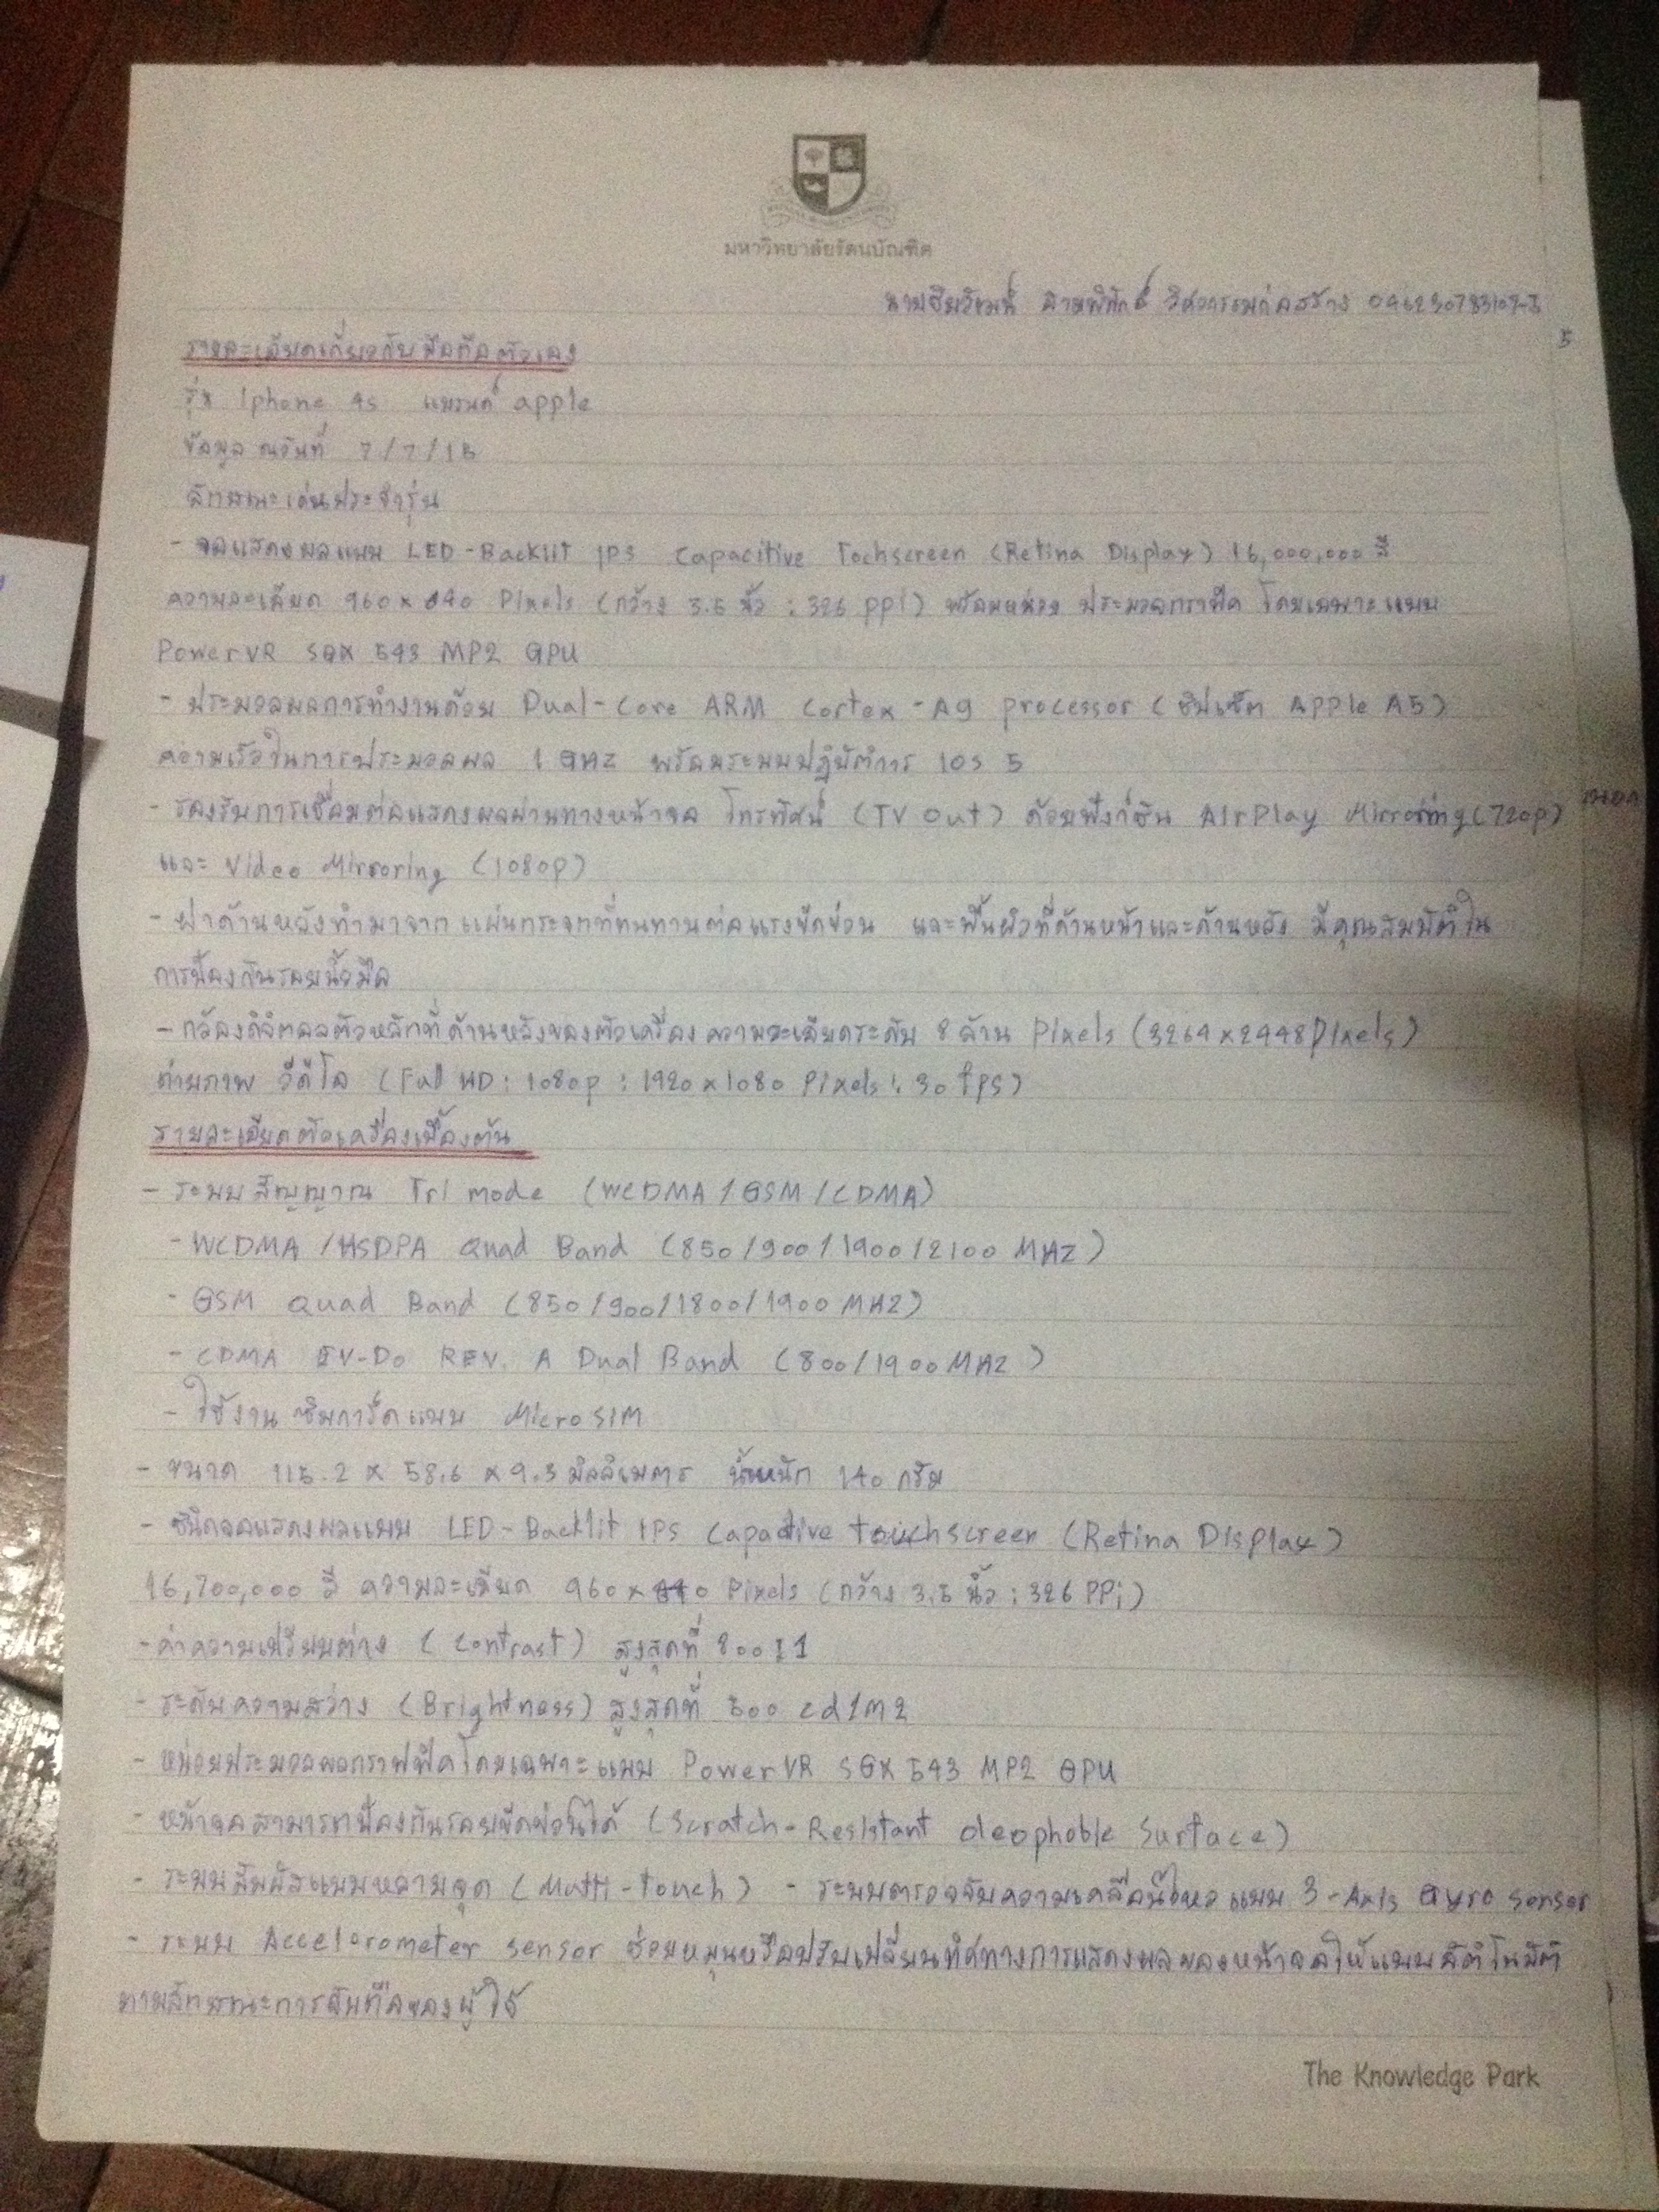 มหาวิทยาลัยรัตนบัณฑิต
วิศวกรรมก่อสร้าง
5
รายละเอียดเกี่ยวกับมือถือตัวเอง
รุ่น Iphone 4s แบรนด์ apple
ข้อมูล ณ วันที่ 7/7/15
ลักษณะเด่นประจำรุ่น
- จอแสดงผลแบบ LED-Backlit IPS Capacitive Tochscreen (Retina Display) 16,000,000 สี
ความละเอียด 960 x 640 Pixels (กว้าง 3.5 นิ้ว : 326 ppi) พร้อมหน่วย ประมวลกราฟิค โดยเฉพาะแบบ
PowerVR SGX 543 MP2 GPU
- ประมวลผลการทำงานด้วย Dual-Core ARM Cortex-A9 processor (ชิปเซ็ต Apple A5)
ความเร็วในการประมวลผล 1 GHZ พร้อมระบบปฏิบัติการ IOS 5
- รองรับการเชื่อมต่อแสดงผลผ่านทางหน้าจอ โทรทัศน์ (TV Out) ด้วยฟังก์ชัน AIrPlay Mirroring (720p)
และ Video Mirroring (1080p)
- ฝาด้านหลังทำมาจากแผ่นกระจกที่ทนทานต่อแรงขีดข่วน และพื้นผิวที่ด้านหน้าและด้านหลัง มีคุณสมบัติใน
การป้องกันรอยนิ้วมือ
- กล้องดิจิตอลตัวหลักที่ด้านหลังของตัวเครื่อง ความละเอียดระดับ 8 ล้าน Pixels (3264 x 2448 Pixels)
ถ่ายภาพ วีดีโอ (Full HD : 1080p : 1920 x 1080 Pixels : 30 fps)
รายละเอียดตัวเครื่องเบื้องต้น
- ระบบสัญญาณ Tri mode (WCDMA / GSM / CDMA)
- WCDMA / HSDPA Quad Band (850/900/1900/2100 MHZ)
- GSM Quad Band (850/900/1800/1900 MHZ)
- CDMA EV-Do REV. A Dual Band (800/1900 MHZ)
- ใช้งานซิมการ์ดแบบ Micro SIM
- ขนาด 115.2 x 58.6 x 9.3 มิลลิเมตร น้ำหนัก 140 กรัม
- ชนิดจอแสดงผลแบบ LED-Backlit IPS Capactive touchscreen (Retina Display)
16,700,000 สี ความละเอียด 960 x 640 Pixels (กว้าง 3.5 นิ้ว : 326 PPi)
- ค่าความเปรียบต่าง (Contrast) สูงสุดที่ 800 : 1
- ระดับความสว่าง (Brightness) สูงสุดที่ 500 cd/m2
- หน่วยประมวลผลกราฟฟิคโดยเฉพาะแบบ PowerVR SGX 543 MP2 GPU
- หน้าจอสามารถป้องกันรอยขีดข่วนได้ (Scratch-Resistant oleophobic Surface)
- ระบบสัมผัสแบบหลายจุด (Multi-touch) - ระบบตรวจจับความเคลื่อนไหวแบบ 3-Axis Gyro sensor
- ระบบ Accelerometer sensor ช่วยหมุนหรือปรับเปลี่ยนทิศทางการแสดงผลของหน้าจอให้แบบอัตโนมัติ
ตามลักษณะการจับถือของผู้ใช้
The Knowledge Park